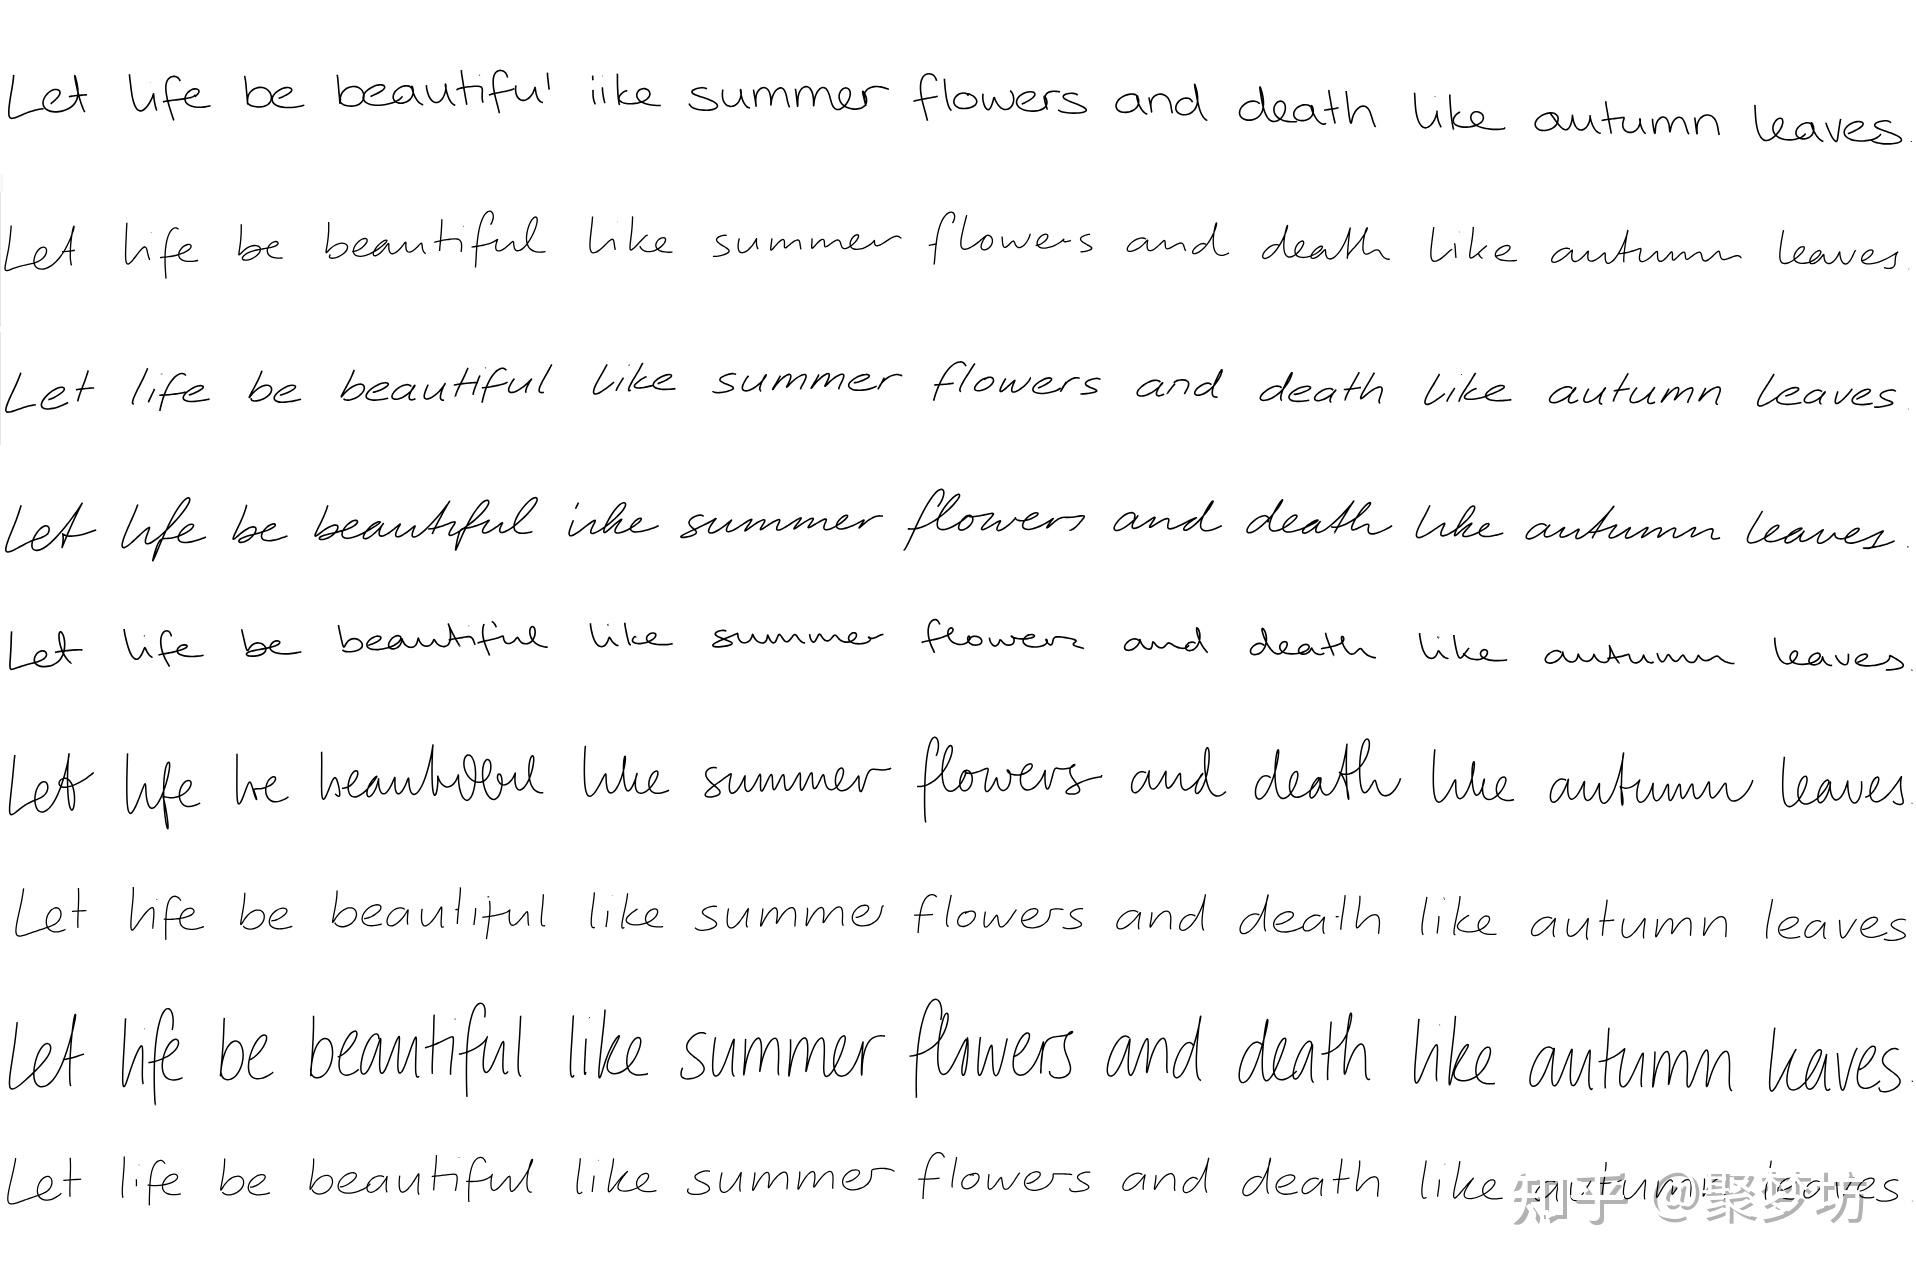 Let life be beautiful like summer flowers and death like autumn leaves.
Let life be beautiful like summer flowers and death like autumn leaves.
Let life be beautiful like summer flowers and death like autumn leaves.
Let life be beautiful like summer flowers and death like autumn leaves.
Let life be beautiful like summer flowers and death like autumn leaves.
Let life be beautiful like summer flowers and death like autumn leaves.
Let life be beautiful like summer flowers and death like autumn leaves
Let life be beautiful like summer flowers and death like autumn leaves.
Let life be beautiful like summer flowers and death like autumn leaves.
知乎 @聚梦坊